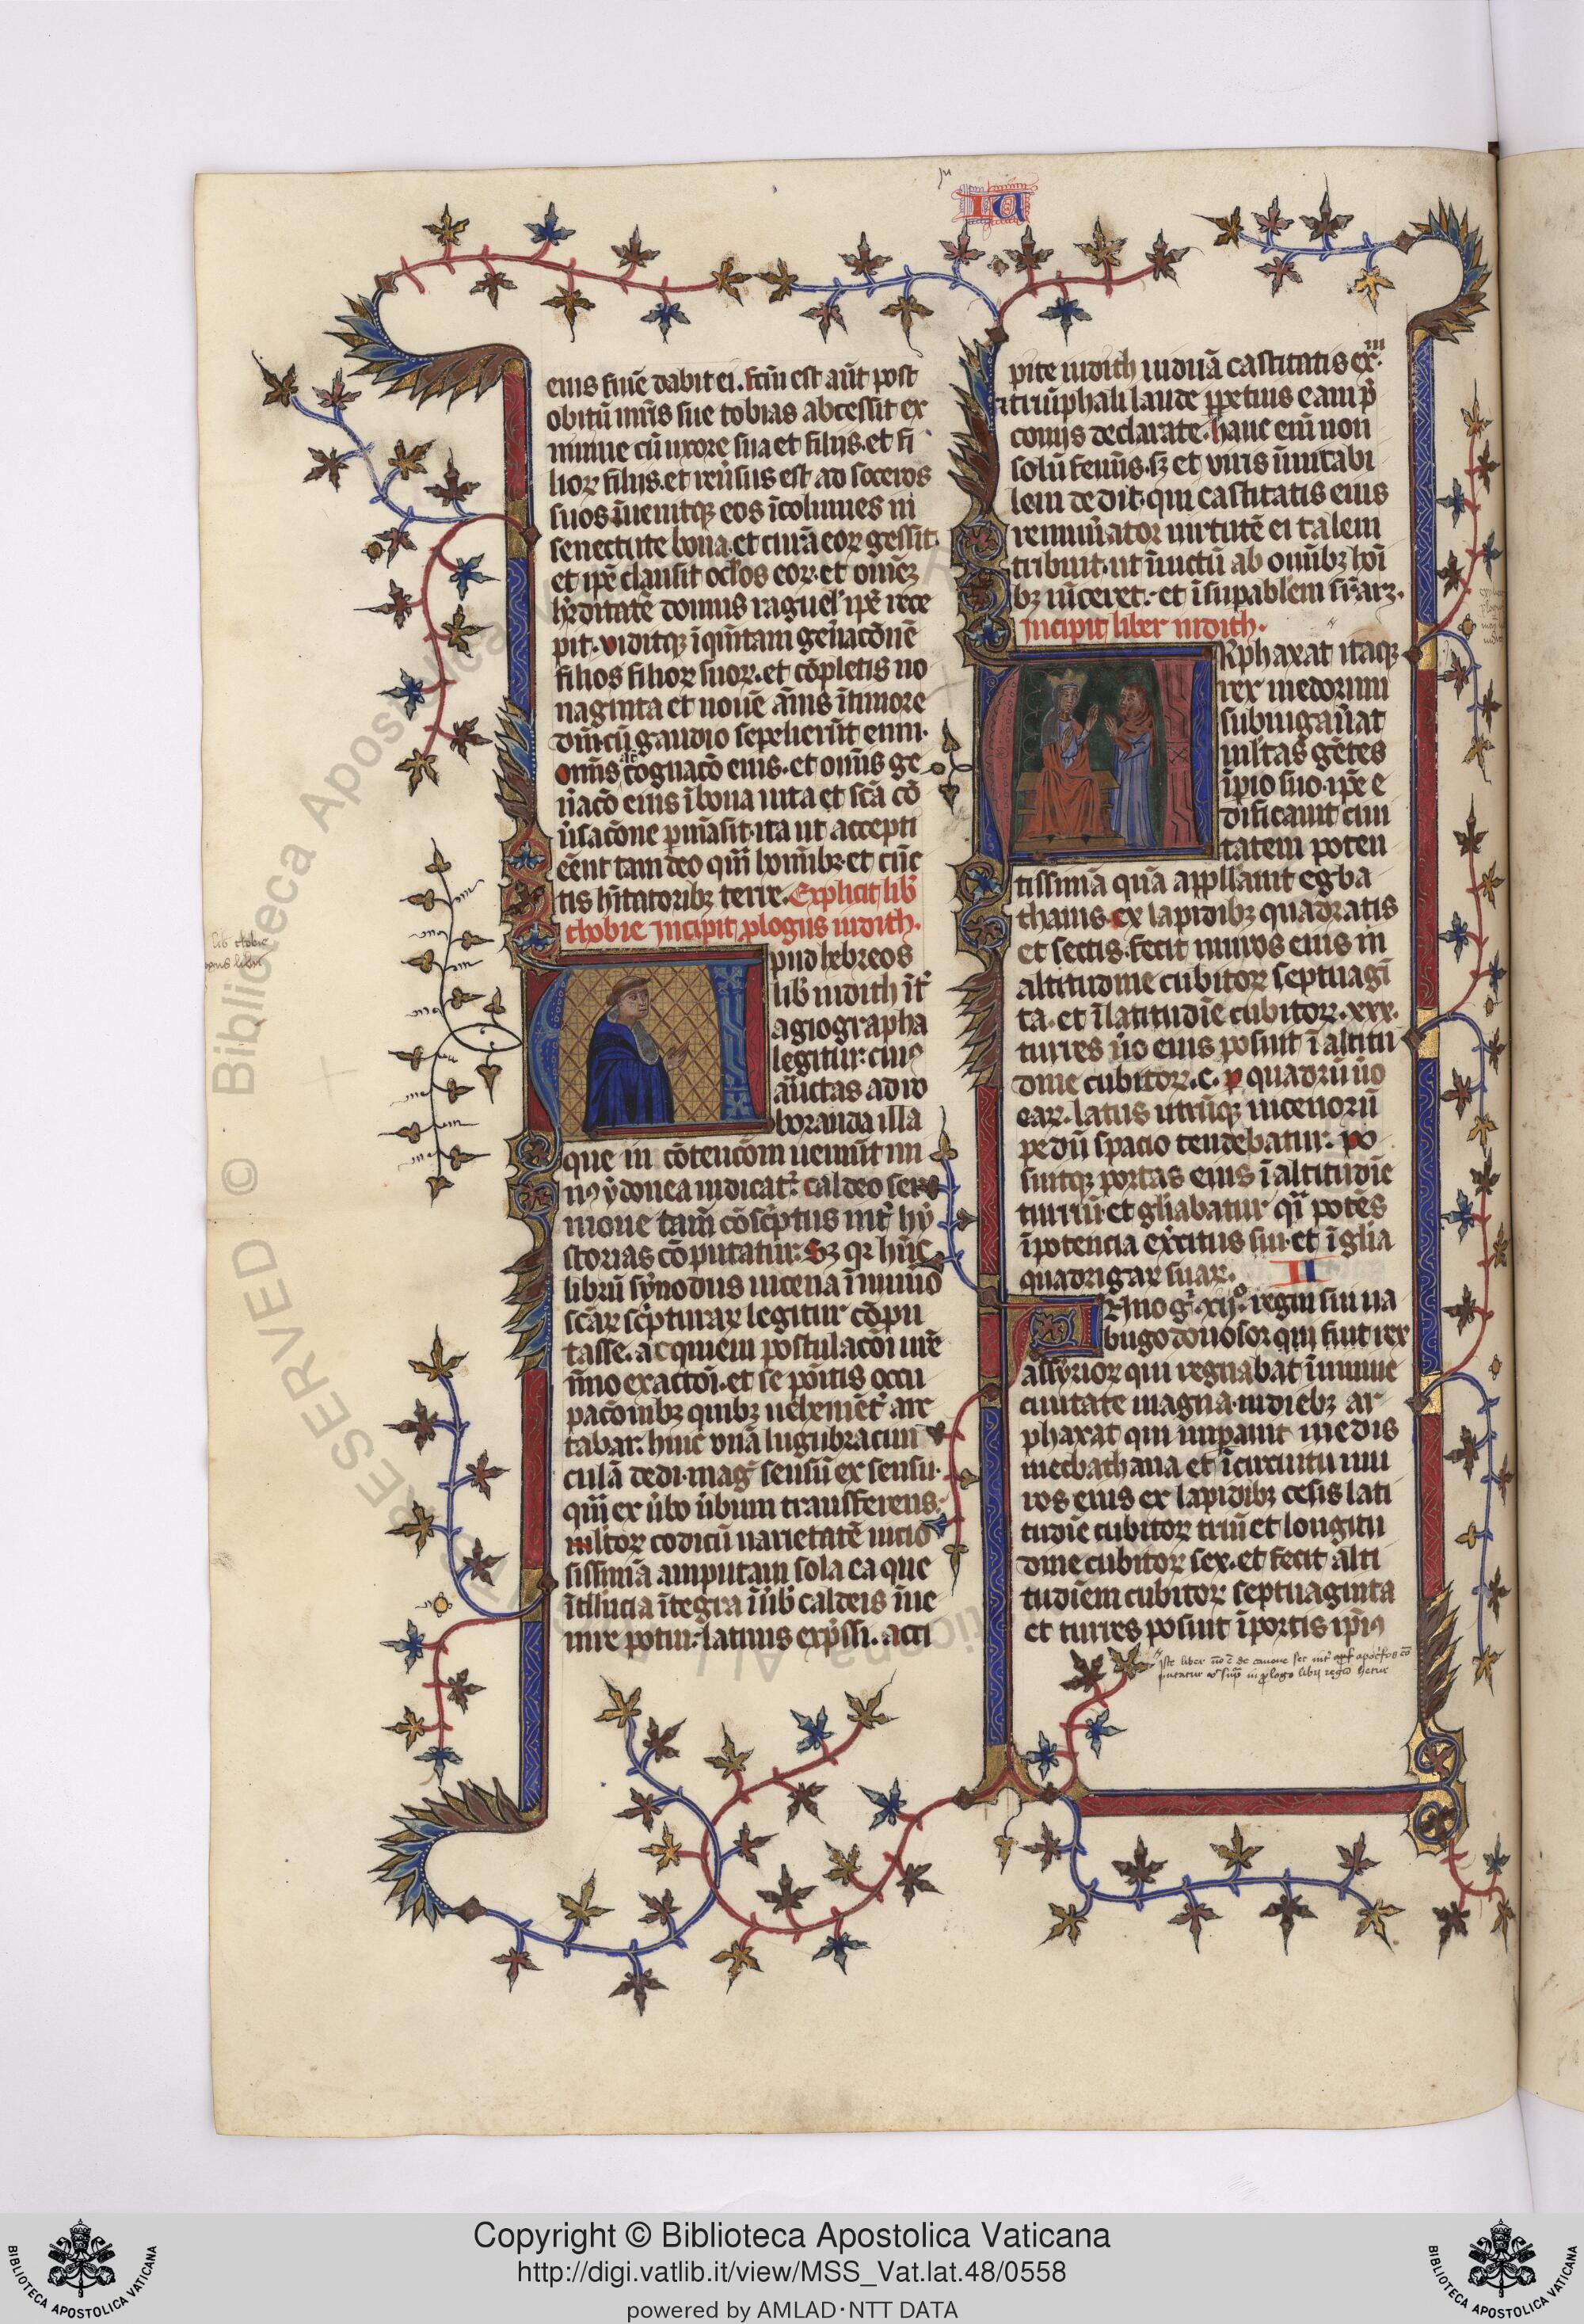 IU
eius finē dabit ei. fc̄m est aūt post
obitū mr̄is sue tobias abcessit ex
niniue cū uxore sua et filiis. et fi
lioꝝ filiis. et reũsus est ad soceros
suos īuenitqꝫ eos īcolumes in
senectute bona. et curā eoꝝ gessit.
et ip̄e clausit oc̄los eoꝝ. et omēꝫ
hr̄editatē domus raguel' ip̄e rece
pit. viditqꝫ īquītam gen̄acōnē
filios filioꝝ suoꝝ. et cōpletis no
naginta et nouē ānis ītimore
dn̄i. cū gaudio sepelierūt eum.
Om̄is cognacō eius. et om̄is ge
n̄acō eius ībona uita et sc̄a cō
ũsacōne pm̄āsit. ita ut accepti
eēnt tam deo qm̄ hoīnibꝫ. et cūc
tis hītatoribꝫ terre. Explicit lib̄
thobie incipit ꝓlogus iudith.
pud hebreos
lib̄ iudith īt̄
agiographa
legitur: cuiꝰ
aūctas ad ro
boranda illa
que in cōtencōm ueniūt mi
nꝰ ydonea iudicat̄: caldeo ser
mone tam̄ cōsc̄ptus int̄ hy
storias cōputatur: Sꝫ qꝛ hūc
librū synodus nicena īnūo
sc̄aꝝ sc̄pturaꝝ legitur cōpu
tasse. acquieui postulacōi ur̄e
īmo exactōi. et se pōitis occu
pacōnibꝫ quibꝫ uehemēt̄ arc
tabar: huic vnā lugubraciun
culā dedi. maḡ sensū ex sensu.
qm̄ ex ũbo ũbum transferens.
mltoꝝ codicū uarietatē uicio
sissimā amputaui sola ea que
ītllīcia ītegra ī ũb' caldeis īue
nire potui: latinis exp̄ssi. acci
pite iudith uiduā castitatis ex̄
et triūphali laude ꝑpetuis eam p̄
coniis declarate. hanc enī non
solū femīs. sꝫ et viris īmitabi
lem dedit. qui castitatis eius
remun̄ator uirtutē ei talem
tribuit. ut īuictū ab om̄ibꝫ hoī
bꝫ uīceret. et īsupablem sr̄arꝫ.
Incipit liber iudith.
Rphaxat itaqꝫ
rex medorum
subiugau̇at
ml'tas gētes
īpio suo. ip̄e e
dificauit ciui
tatem poten
tissimā quā appllauit egba
thanis. ex lapidibꝫ quadratis
et sectis. fecit muros eius in
altitudine cubitoꝝ septuagī
ta. et ī latitudīe cubitoꝝ. xxx.
turres ũo eius posuit ī altitu
dine cubitoꝝ. c. ꝑ quadrū ũo
eaꝝ. latus utrūqꝫ uicenorū
pedū spacio tendebatur: po
suitqꝫ portas eius ī altitudīe
turriū. et gl̄iabatur q̄i potēs
īpotencia ex̄citus sui. et ī gl̄ia
quadrigaꝝ suaꝝ.
II
Ano g̊. xij̊. regni sui na
bugodonosor qui fuit rex
assyrioꝝ qui regnabat īniniue
ciuitate magna. indiebꝫ ar
phaxat qui imꝑauit medis
inecbathana et ī circuitu mu
ros eius ex lapidibꝫ cesis lati
tudīe cubitoꝝ triū et longitu
dine cubitoꝝ sex. et fecit alti
tudīem cubitoꝝ septuaginta
et turres posuit īportis ipīꝰ
Iste liber nō ē de canone set int̄ apōc̄fos cō
putatur
Copyright © Biblioteca Apostolica Vaticana
http://digi.vatlib.it/view/MSS_Vat.lat.48/0558
powered by AMLAD·NTT DATA
BIBLIOTECA APOSTOLICA VATICANA
BIBLIOTECA APOSTOLICA VATICANA